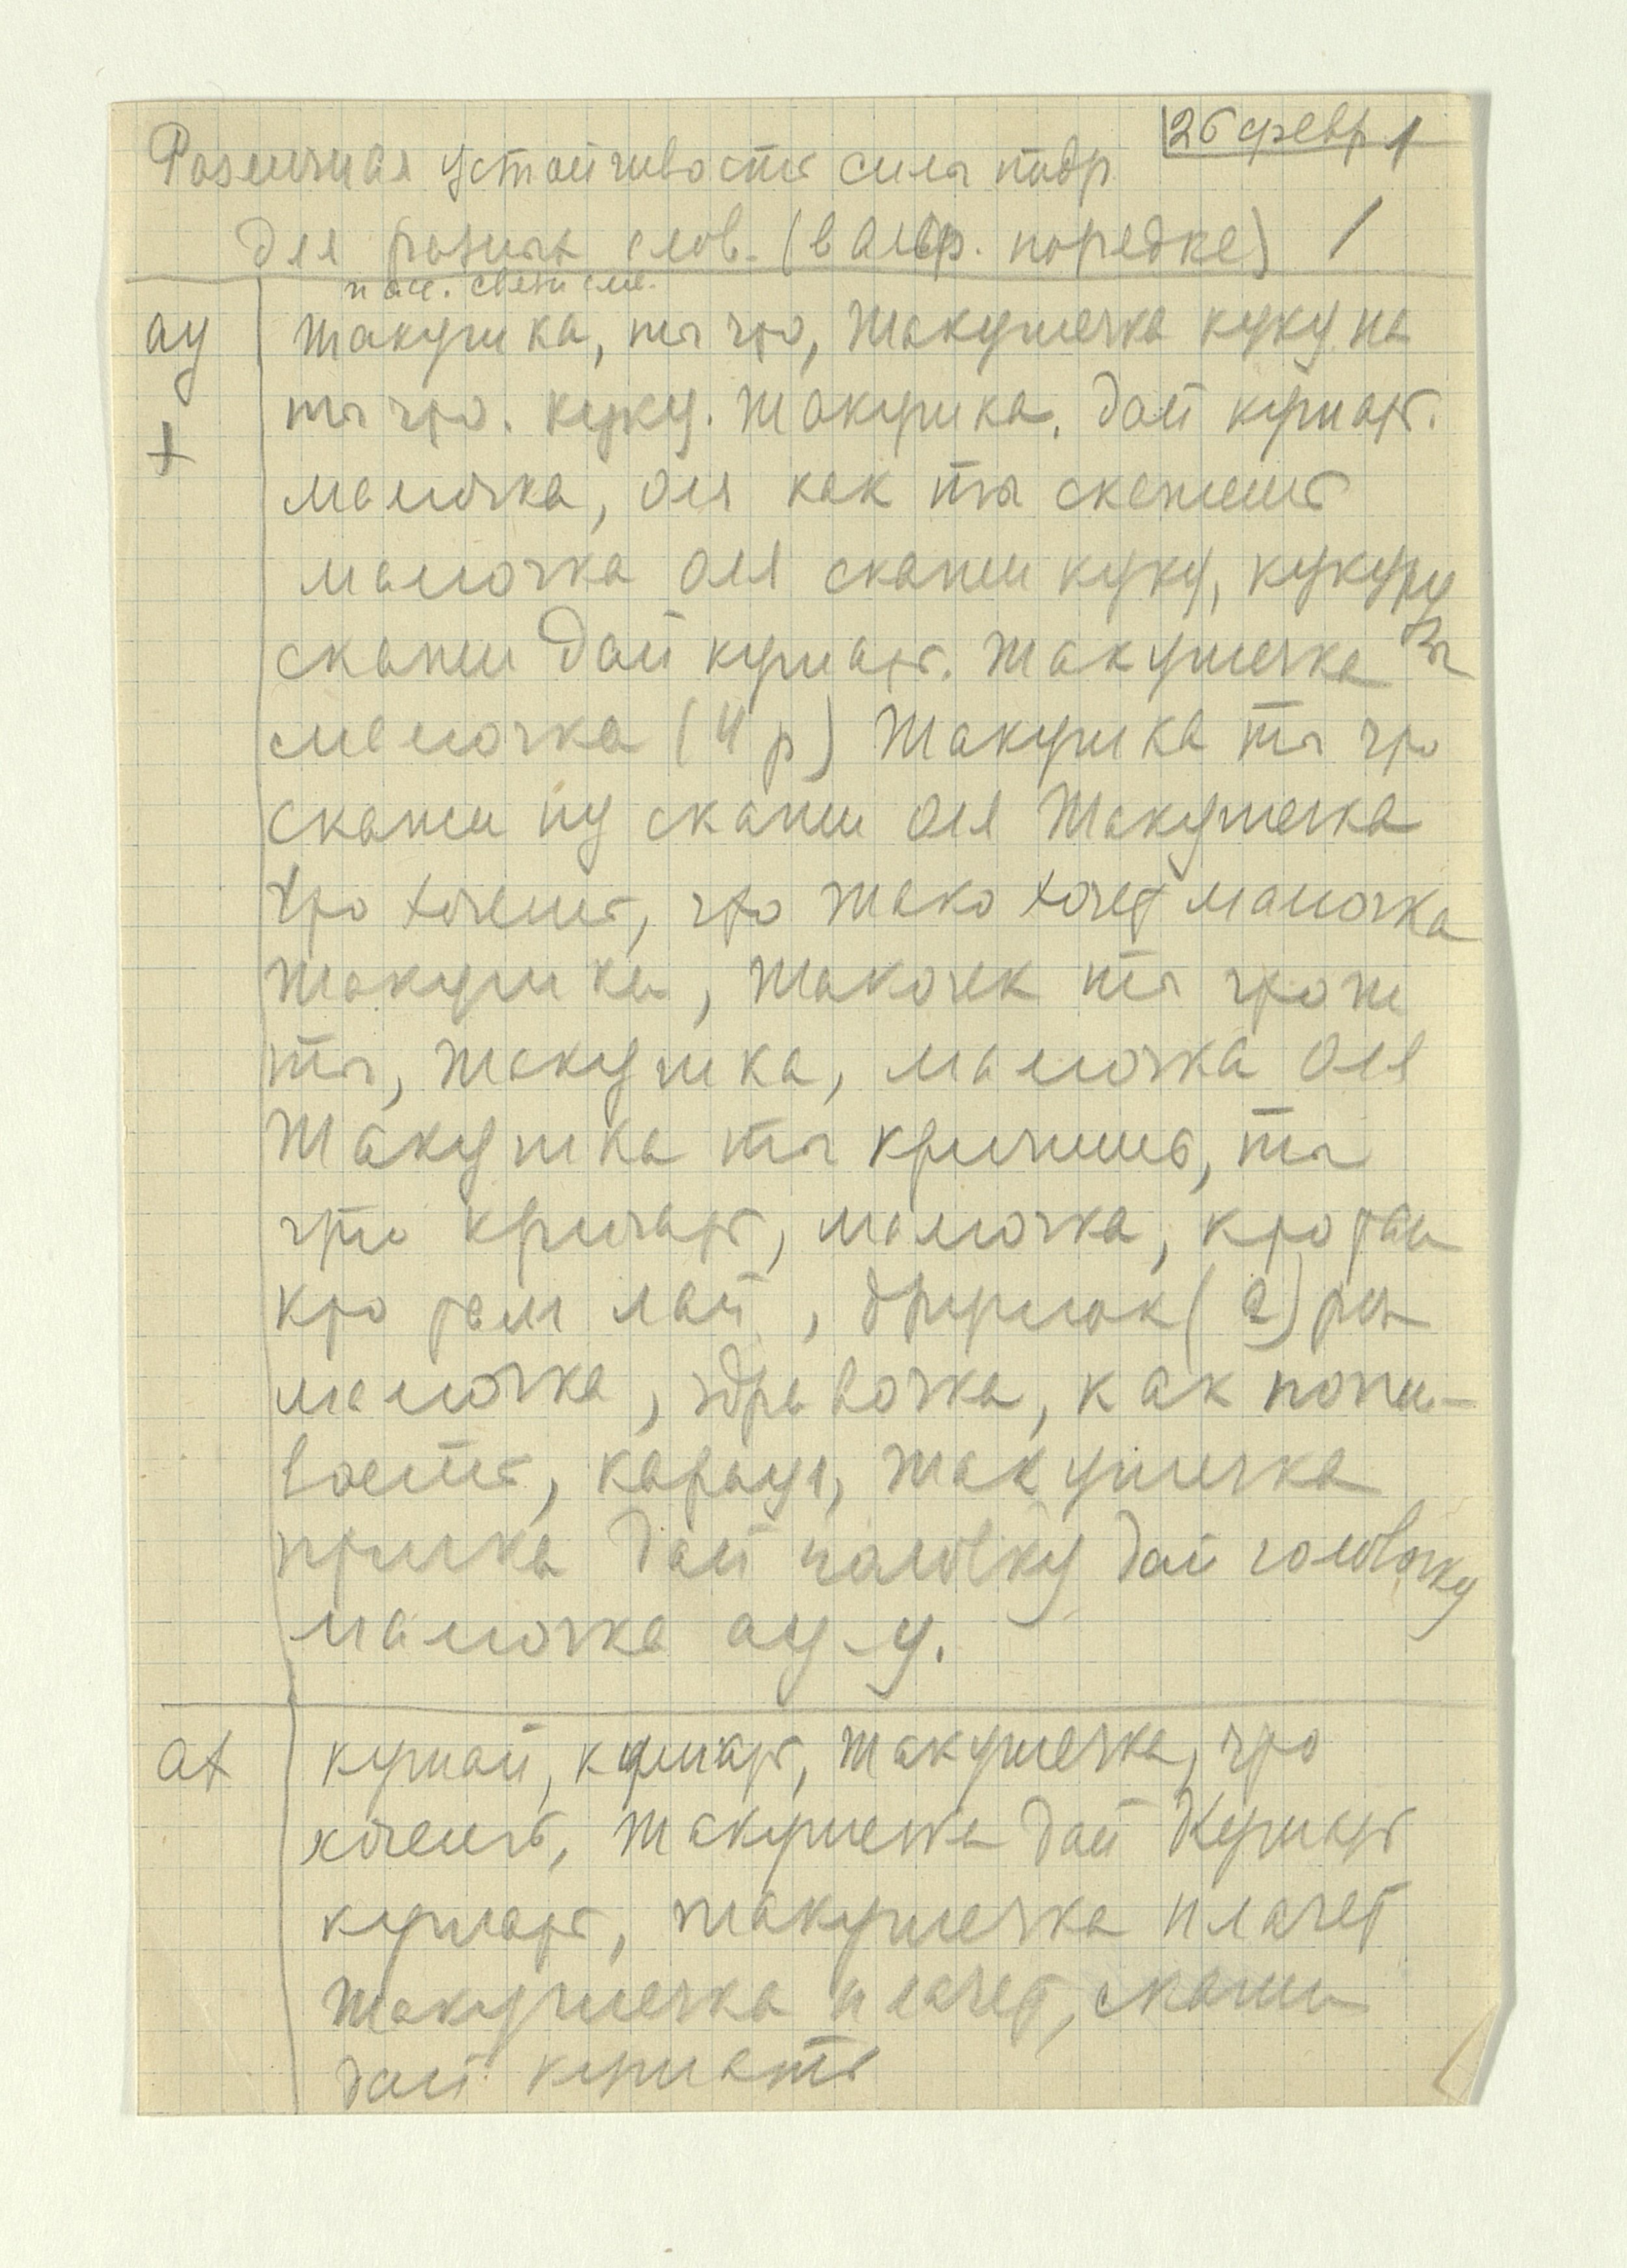 26 февр 1
Различная устойчивость сила подр
для разных слов. (в алф. порядке) /
ау
+
Жакушка, ты что, Жакушечка куку на
ты что. куку. Жакушка. дай кушать.
мамочка, Оля как ты скажешь
мамочка Оля скажи куку, кукуру
скажи дай кушать. Жакушечка зы
мамочка (4 р) Жакушка ты что
скажи ну скажи Оля Жакушечка
Что хочешь, что Жако хочет мамочка
Жакушка, Жакочек ты что же
ты, Жакушка, мамочка Оля
Жакушка ты кричишь, ты
что кричать, мамочка, кто там
кто там лай, дружок (2) раз
мамочка, как пожи-
ваешь, караул, Жакушечка
птичка дай головку дай головочку
мамочка ау-у.
ах
кушай, кушать, Жакушечка, что
хочешь, Жакушечка дай Кушать
кушать, Жакушечка плачет
Жакушечка плачет, скажи
дай кушать